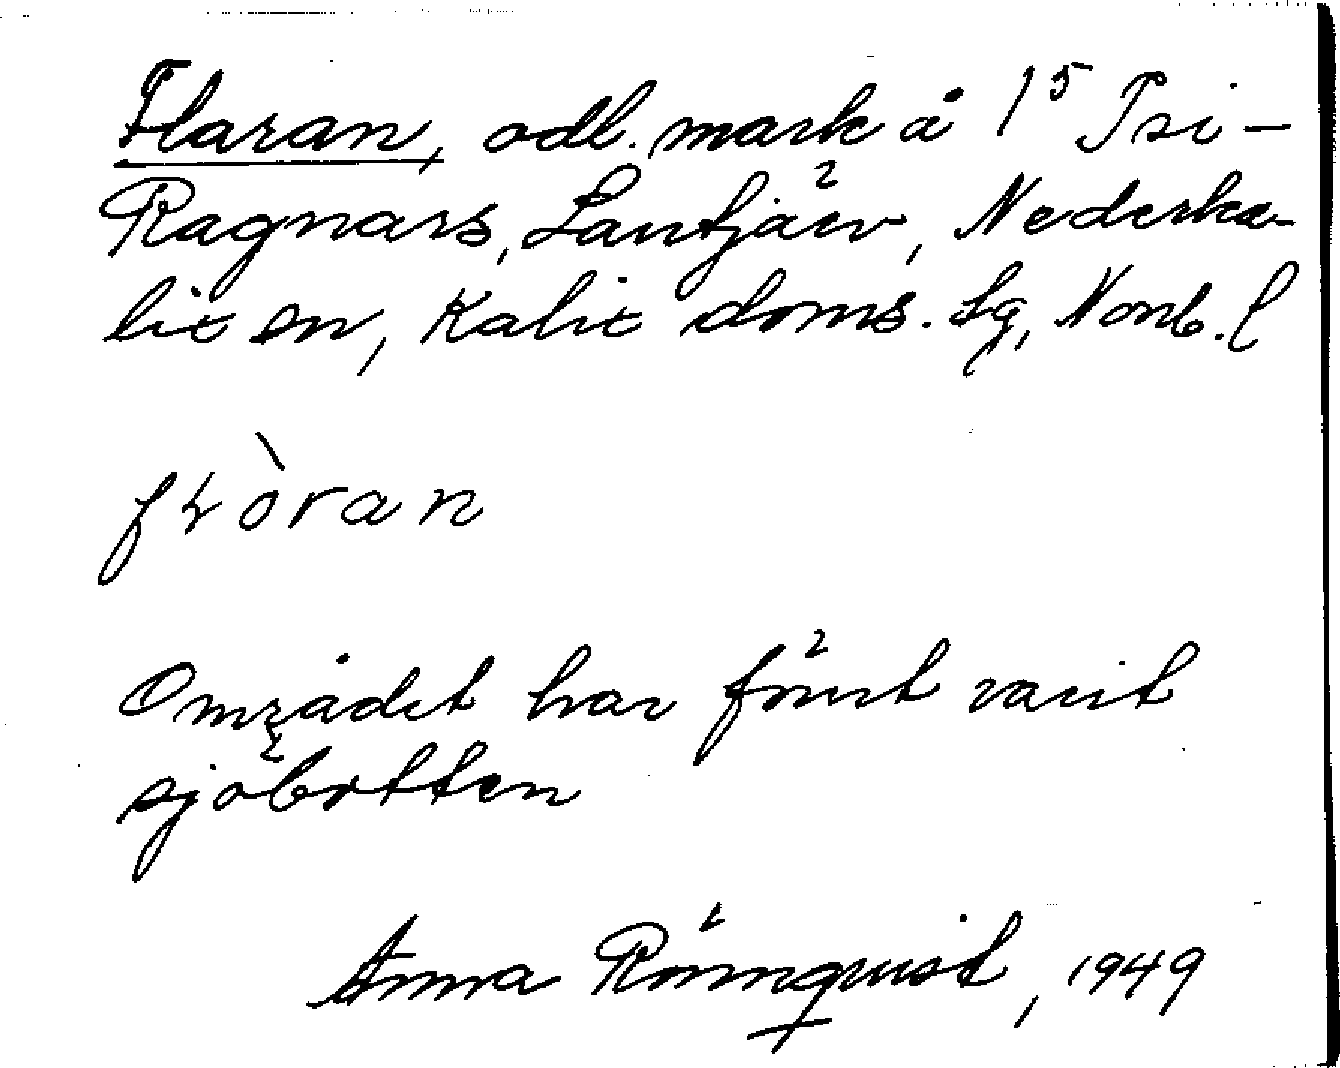 Flaran, odl. mark å 1⁵ Psi-
Ragnars, Låntjärv, Nederka-
lix sn, Kalix doms. sg, Norrb. l
fɽòran
Området har förut varit
sjöbotten
Anna Rönnquist, 1949